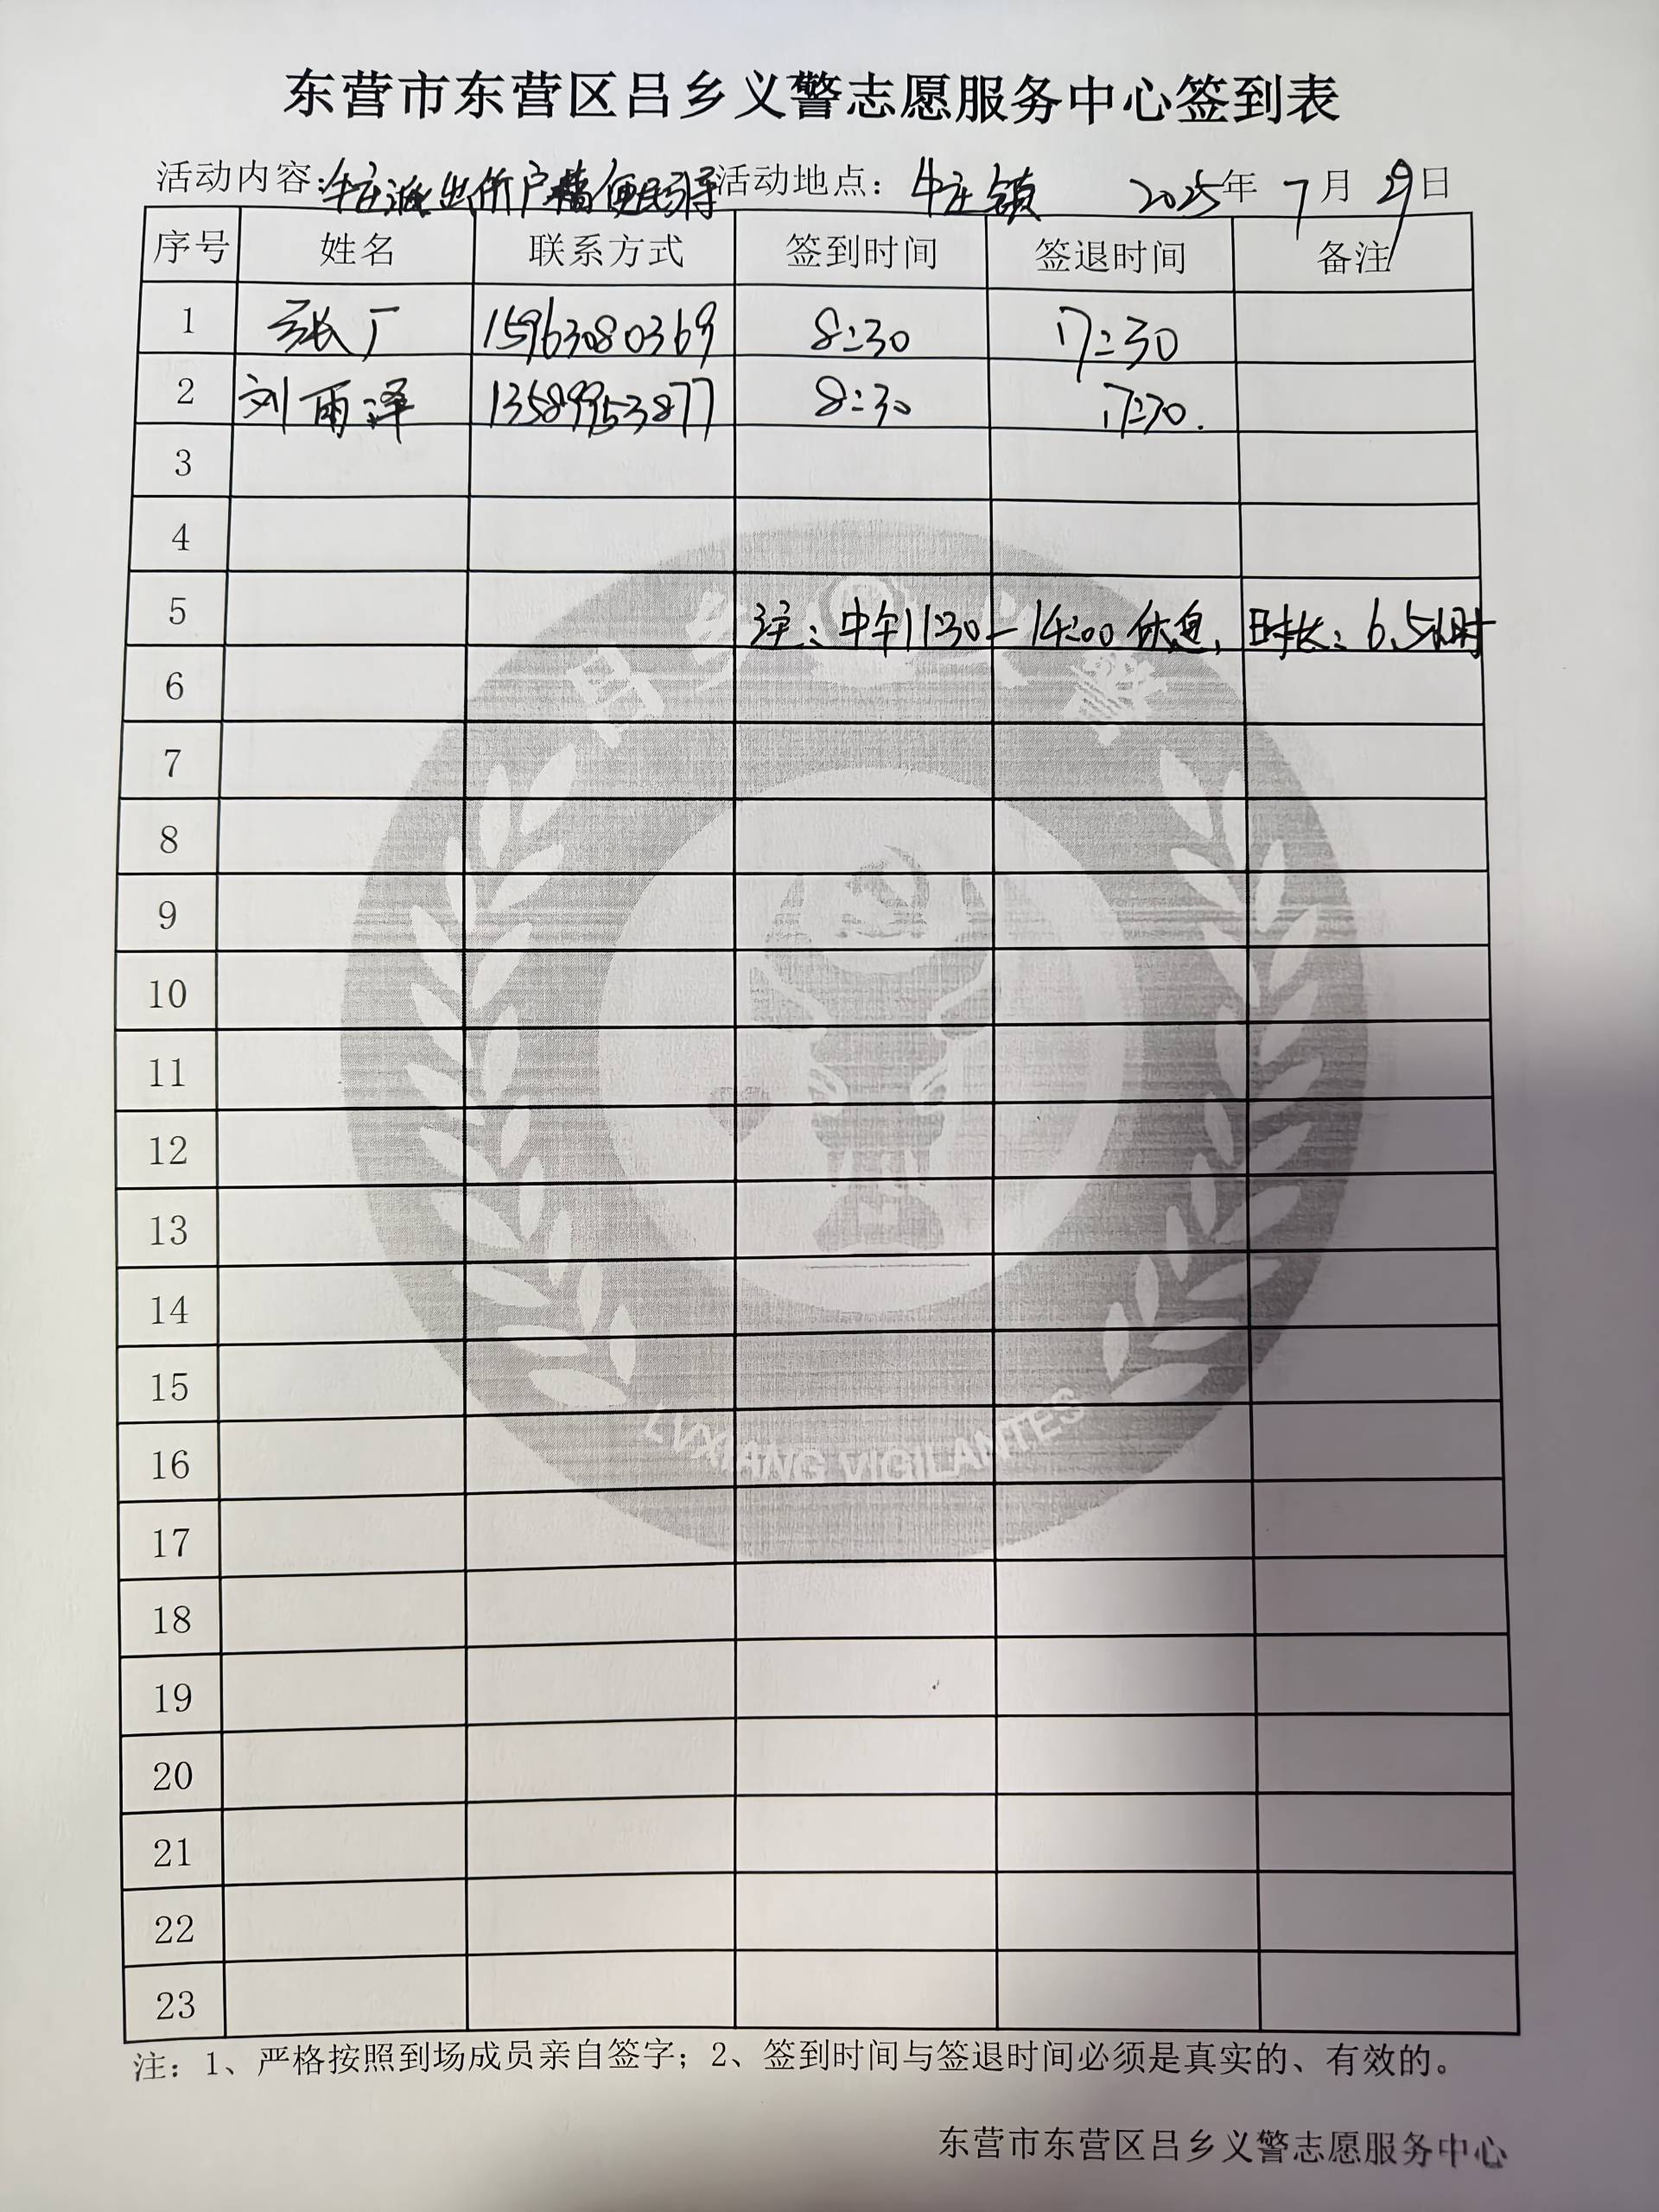 东营市东营区吕乡义警志愿服务中心签到表
活动内容：牛庄派出所户籍便民引导 活动地点：牛庄镇 2025年7月29日
序号 姓名 联系方式 签到时间 签退时间 备注
1 张厂 15963080369 8:30 17:30
2 刘雨泽 13589953877 8:30 17:30.
3
4
5 注：中午11:30—14:00休息，时长：6.5小时
6
7
8
9
10
11
12
13
14
15
16
17
18
19
20
21
22
23
吕乡义警
LVXIANG VIGILANTES
注：1、严格按照到场成员亲自签字；2、签到时间与签退时间必须是真实的、有效的。
东营市东营区吕乡义警志愿服务中心